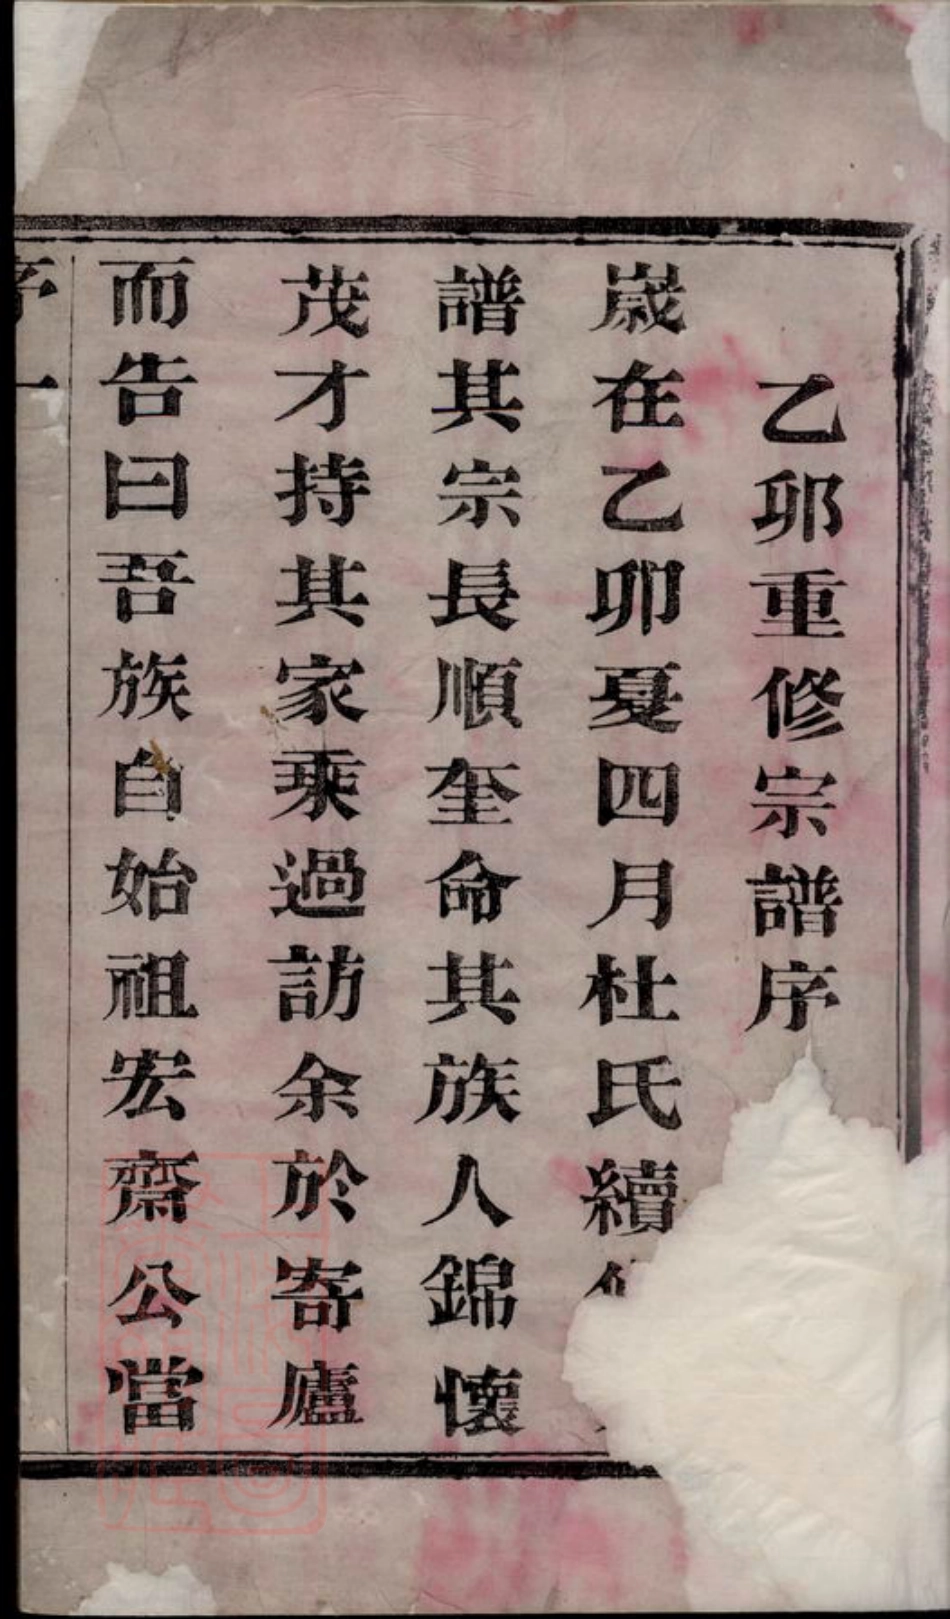 乙卯重修宗譜序
嵗在乙卯夏四月杜氏續
譜其宗長順奎命其族人錦懷
茂才持其家乘過訪余於寄廬
而告曰吾族自始祖宏齋公當
序一